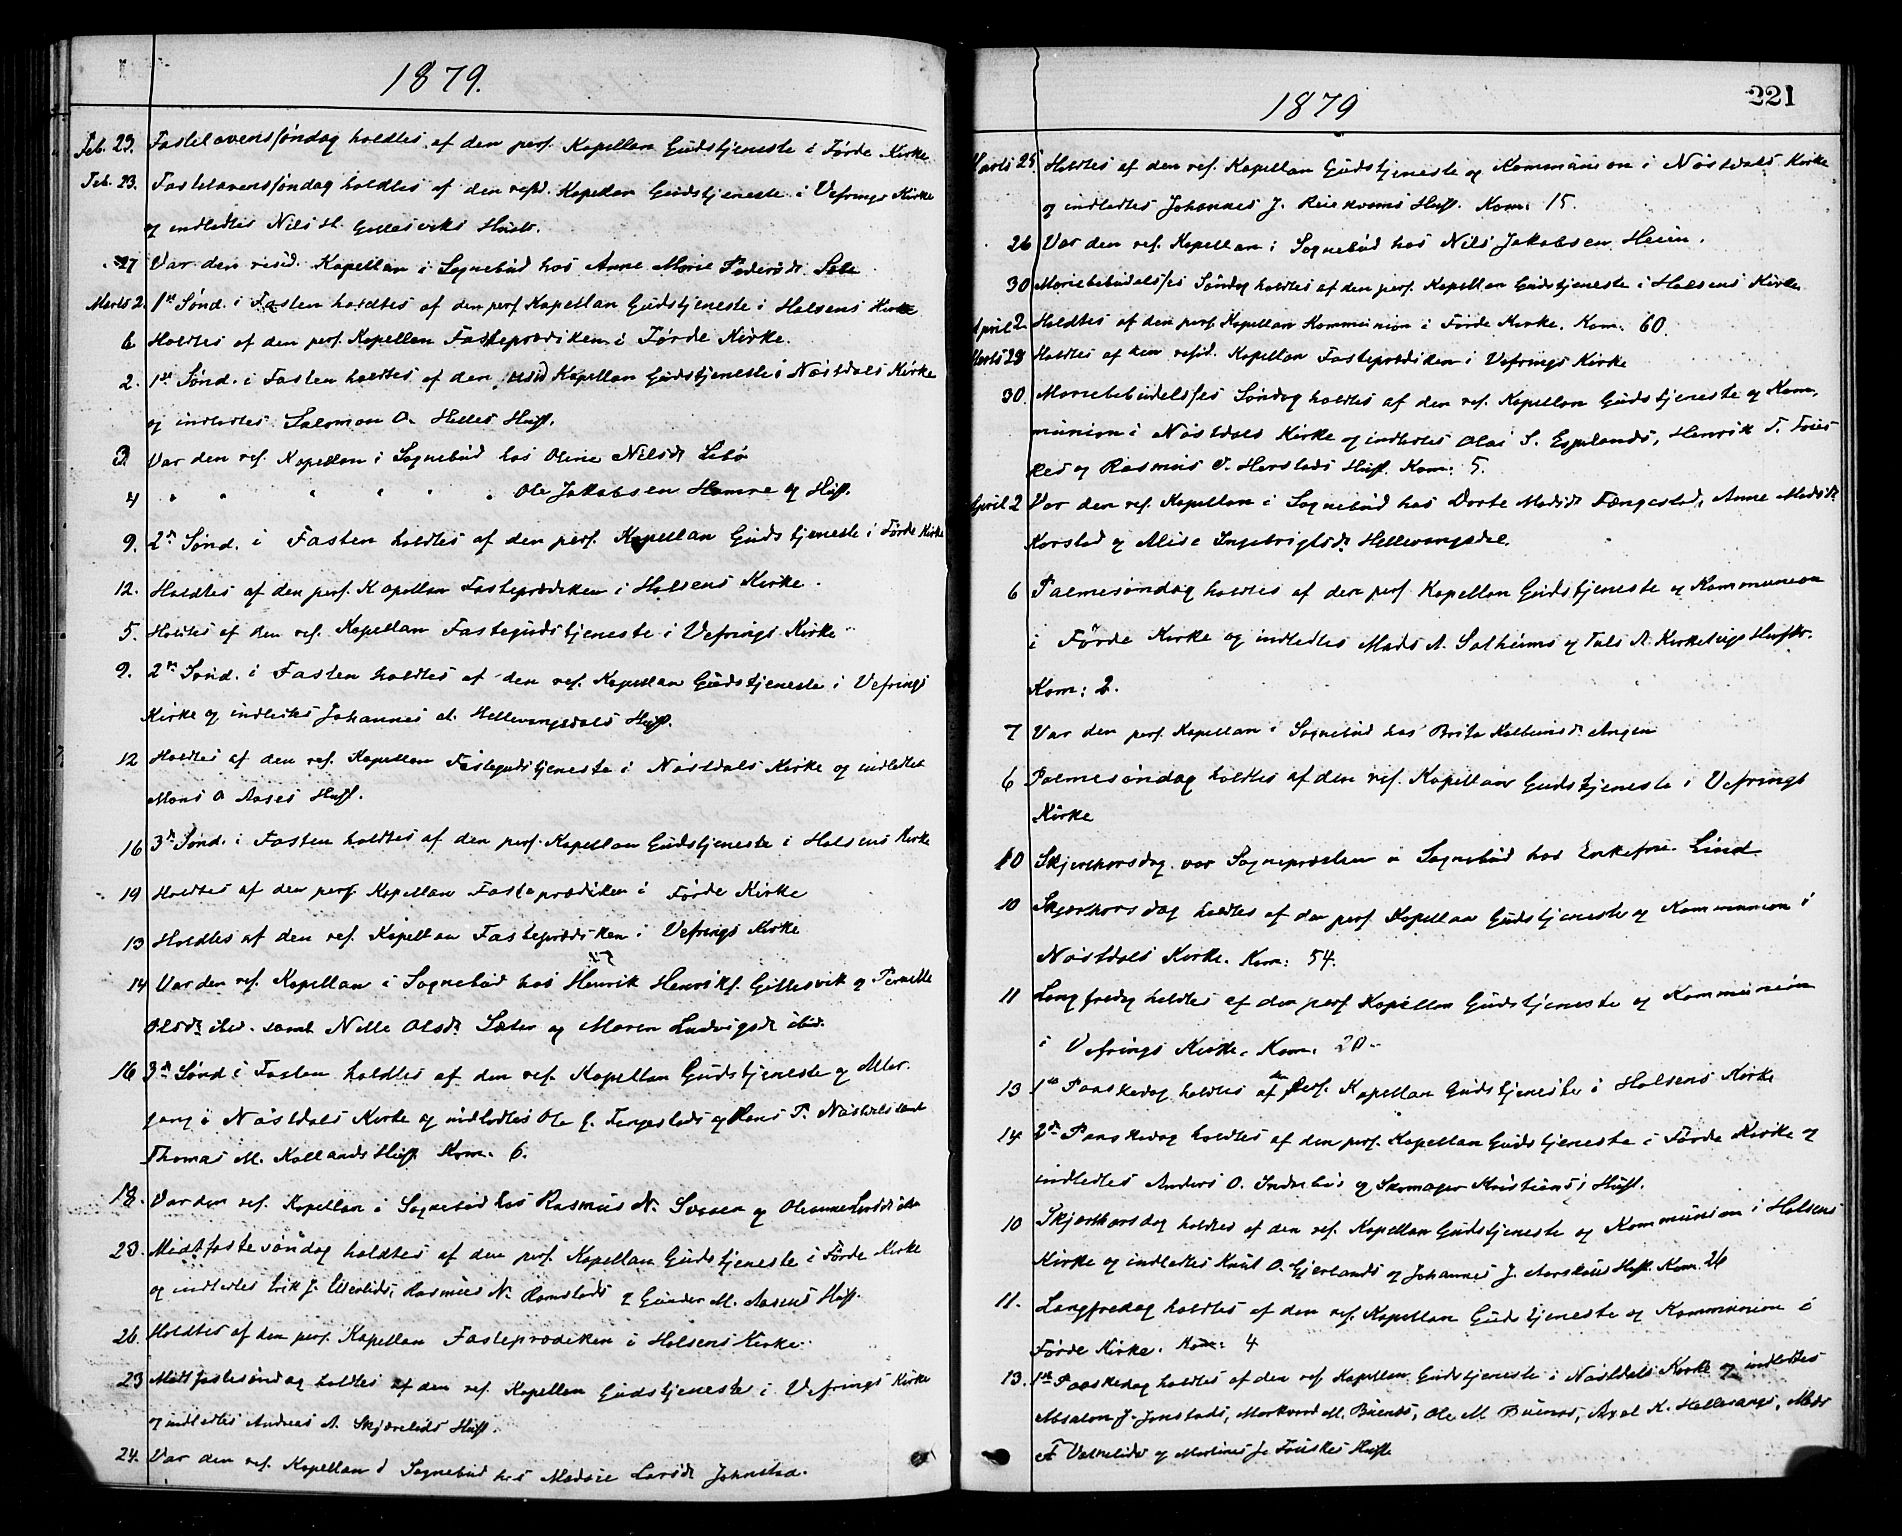 1879.
Feb. 23. Fastelavenssøndag holdtes af den pers. Kapellan Gudstjeneste i Førde Kirke.
Feb. 23. Fastelavenssøndag holdtes af den resid. Kapellan Gudstjeneste i Vefrings Kirke
og indledtes Nils H. Gellesviks Hustr.
27 Var den resid. Kapellan i Sognebud hos Anne Marie Pedersdr.
Marts 2. 1ste Sønd. i Fasten holdtes af den pers. Kapellan Gudstjeneste i Holsens Kirke
6 Holdtes af den pers. Kapellan Fasteprædiken i Førde Kirke.
2. 1ste Sønd. i Fasten holdtes af den resid Kapellan Gudstjeneste i Nøstdals Kirke
og indledtes Salomon O. Helles Hust.
3 Var den res. Kapellan i Sognebud hos Oline Nilsdr.
4 " " " " " " Ole Jakobsen Hamre og Hust.
9. 2n Sønd. i Fasten holdtes af den pers. Kapellan Gudstjeneste i Førde Kirke
12. Holdtes af den pers. Kapellan Fasteprædiken i Holsens Kirke.
5. Holdtes af den res. Kapellan Fastegudstjeneste i Vefrings Kirke
9. 2n Sønd. i Fasten holdtes af den res. Kapellan Gudstjeneste i Vefrings
Kirke og indledtes Johannes A. Hellevangsdals Hust.
12 Holdtes af den res. Kapellan Fastegudstjeneste i Nøstdals Kirke og indledtes
Mons O Aases Hust.
16 3n Sønd. i Fasten holdtes af den pers. Kapellan Gudstjeneste i Holsens Kirke
19 Holdtes af den pers. Kapellan Fasteprædiken i Førde Kirke
13 Holdtes af den res. Kapellan Fasteprædiken i Vefrings Kirke
14 Var den res. Kapellan i Sognebud hos Henrik Henriks. Gellesvik og Pernille
Olsdr. ibid. samt Nille Olsdr. Sæter og Maren Ludvigsdr. ibid.
16 3n Sønd i Fasten holdtes af den res. Kapellan Gudstjeneste og Alter
gang i Nøstdals Kirke og indledtes Ole G. Tengestads og Hans P. Nøstdals samt
Thomas M. Kallands Hust. Kom. 6.
18. Var den res. Kapellan i Sognebud hos Rasmus N. Svesen og
23. Midtfastesøndag holdtes af den pers. Kapellan Gudstjeneste i Førde Kirke
og indledtes Erik J. Rasmus N. Ramstads og M. Aasens Hust.
26. Holdtes af den pers. Kapellan Fasteprædiken i Holsens Kirke.
23 Midtfastesøndag holdtes af den res. Kapellan Gudstjeneste i Vefrings Kirke
og indledtes Andreas A. Skjærelids Hust.
24. Var den res. Kapellan i Sognebud hos Larsdr. Johnstad.
221
1879
Marts 25. Holdtes af den res. Kapellan Gudstjeneste og Kommunion i Nøstdals Kirke
og indledtes Johannes J. Reiakvams Hust. Kom: 15.
26 Var den res. Kapellan i Sognebud hos Nils Jakobsen Heim.
30 Mariebebudelses Søndag holdtes af den pers. Kapellan Gudstjeneste i Holsens Kirke
April 2 Holdtes af den pers. Kapellan Kommunion i Førde Kirke. Kom. 60.
Marts 28 Holdtes af den resid. Kapellan Fasteprædiken i Vefrings Kirke
30. Mariebebudelses Søndag holdtes af den res. Kapellan Gudstjeneste og Kom
munion i Nøstdals Kirke og indledtes Olai S. Espelands, Henrik T. Føies
kes og Rasmus J. Horstads Hust. Kom: 5.
April 2 Var den res. Kapellan i Sognebud hos Dorte Madsdr. Tengestad, Anne Madsdr.
Horstad og Alise Ingebrigtsdr. Hellevangsdal.
6 Palmesøndag holdtes af den pers. Kapellan Gudstjeneste og Kommunion
i Førde Kirke og indledtes Mads A. Solheims og A. Hustr.
Kom: 2.
7 Var den pers. Kapellan i Sognebud hos Brita Angen
6 Palmesøndag holdtes af den res. Kapellan Gudstjeneste i Vefrings
Kirke
10 Skjærthorsdag var Sognepræsten i Sognebud hos Enkefru Lind
10 Skjærthorsdag holdtes af den pers. Kapellan Gudstjeneste og Kommunion i
Nøstdals Kirke. Kom: 54.
11 Langfredag holdtes af den pers. Kapellan Gudstjeneste og Kommunion
i Vefrings Kirke. Kom. 20.
13 1ste Paaskedag holdtes af den pers. Kapellan Gudstjeneste i Holsens Kirke
14 2n Paaskedag holdtes af den pers. Kapellan Gudstjeneste i Førde Kirke og
indledtes Anders O. og Skomager Kristians Hust.
10 Skjærthorsdag holdtes af den res. Kapellan Gudstjeneste og Kommunion i Holsens
Kirke og indledtes Knut O. Gjerlands og Johannes J. Hust. Kom. 26
11. Langfredag holdtes af den res. Kapellan Gudstjeneste og Kommunion i
Førde Kirke. Kom: 4
13. 1ste Paaskedag holdtes af den res Kapellan Gudstjeneste i Nøstdals Kirke og indledtes
Absalon J. Jonstads, M. Ole M. Axel K. Hellevangs, Mads
og Martines Hust